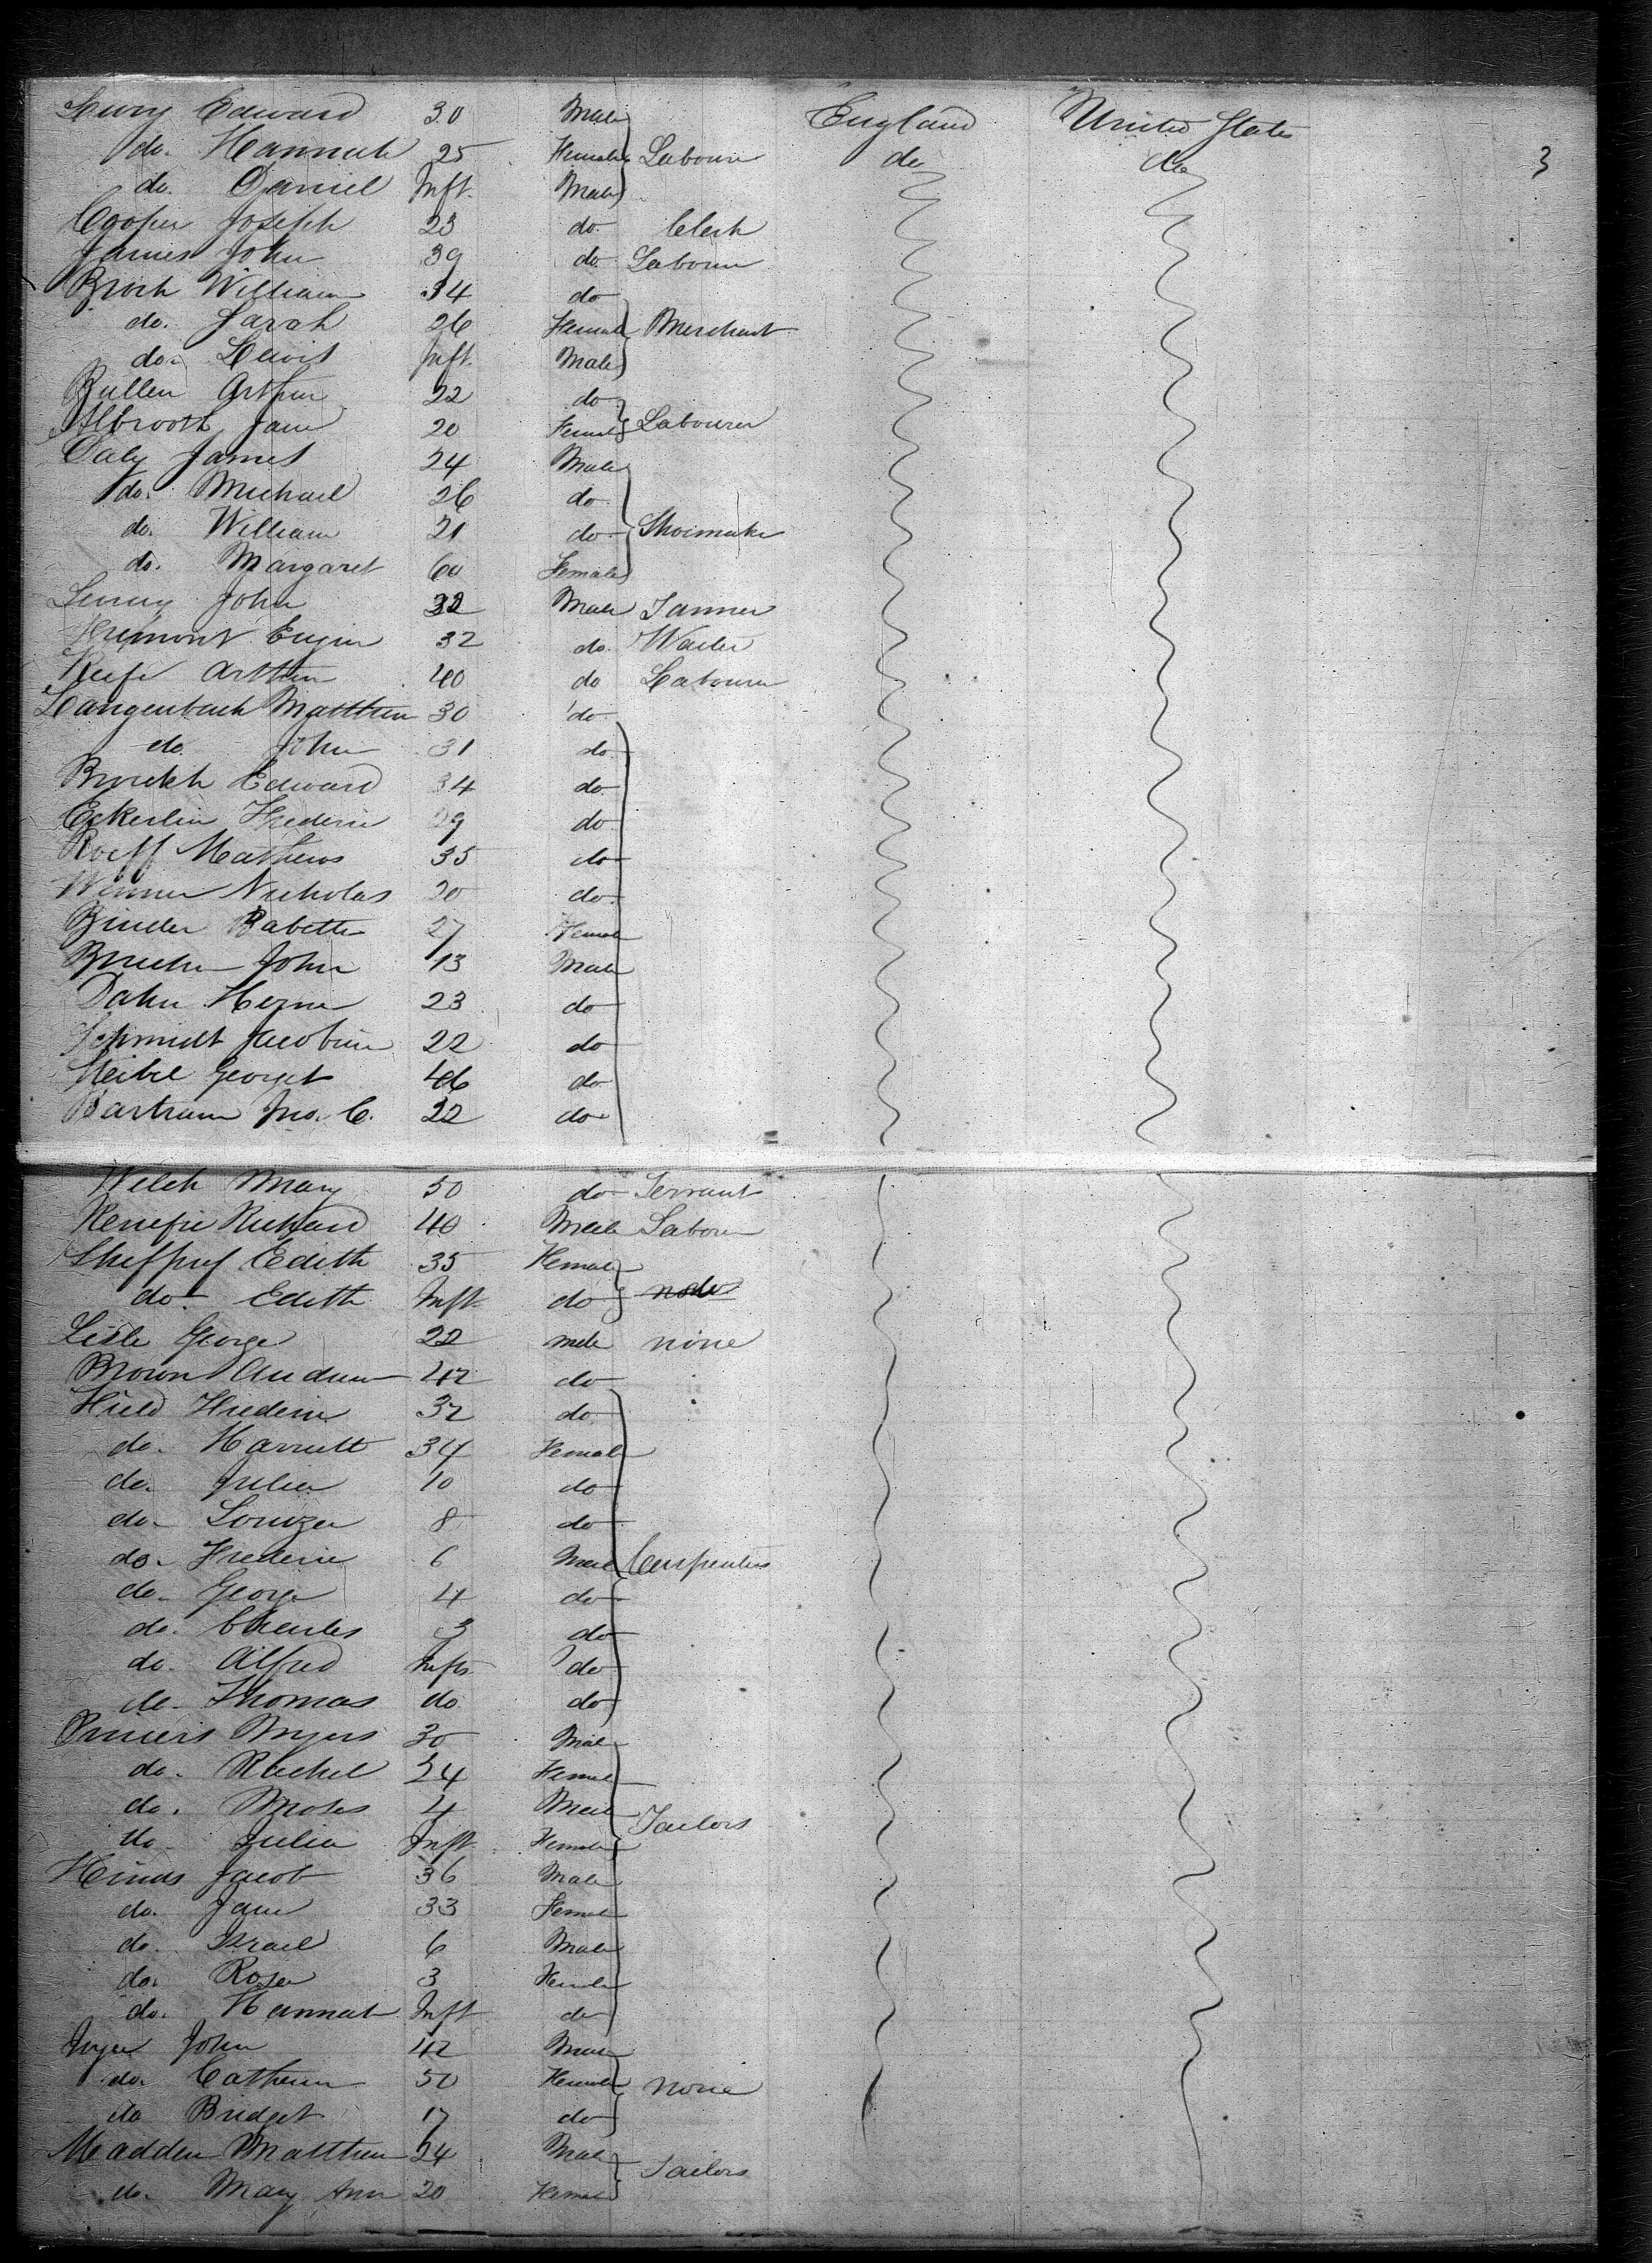 Edward 30 Male England United States
do. Hannah 25 Female Labourer do do 3
do. Daniel Inft. Male
Cooper Joseph 23 do. Clerk
James John 39 do. Labourer
William 34 do
do. Sarah 26 Female Merchant
do. Lewis Inft. Male
Bullen Arthur 22 do
Jane 20 Female Labourer
Daly James 24 Male
do. Michael 26 do
do. William 21 do Shoemaker
do. Margaret 60 Female
John 32 Male Tanner
32 do. Waiter
Keefe Arthur 40 do Labourer
Langenbach Matthew 30 do
do. John 31 do
Edward 34 do
Eckerlin Frederic 29 do
Roeff Mathews 35 do
Nicholas 20 do
Binder Babette 27 Female
John 13 Male
Dahn 23 do
Schmidt 22 do
George 46 do
Bartram Jno. C. 22 do
Welch Mary 50 do Servant
Richard 40 Male Labourer
Edith 35 Female
do. Edith Inft. do
Lisle George 22 male none
Brown Andrew 42 do
Field Frederic 32 do
do. Harriett 34 Female
do. Julia 10 do
do. Louiza 8 do
do. Frederic 6 Male Carpenters
do. George 4 do
do. Charles 3 do
do. Alfred Infts. do
do. Thomas do do
Myers 30 Male
do. Rachel 24 Female
do. Moses 4 Male Tailors
do. Julia Inft. Female
Hinds Jacob 36 Male
do. Jane 33 Female
do. Israel 6 Male
do. Rosa 3 Female
do. Hannah Inft do
John 42 Male
do. Catherine 50 Female none
do Bridget 17 do
Madden Matthew 24 Male Tailors
do. Mary Ann 20 Female